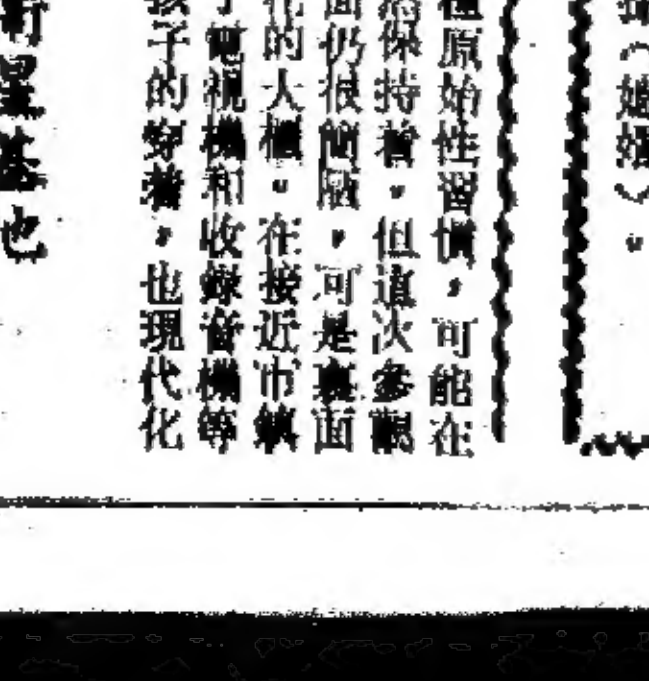 婚姻）。
種原始性習慣，可能在
然保持着，但這次參觀
面仍很簡陋，可是裏面
化的大櫃。在接近市鎮
了電視機和收錄音機等
孩子的穿着，也現代化
也